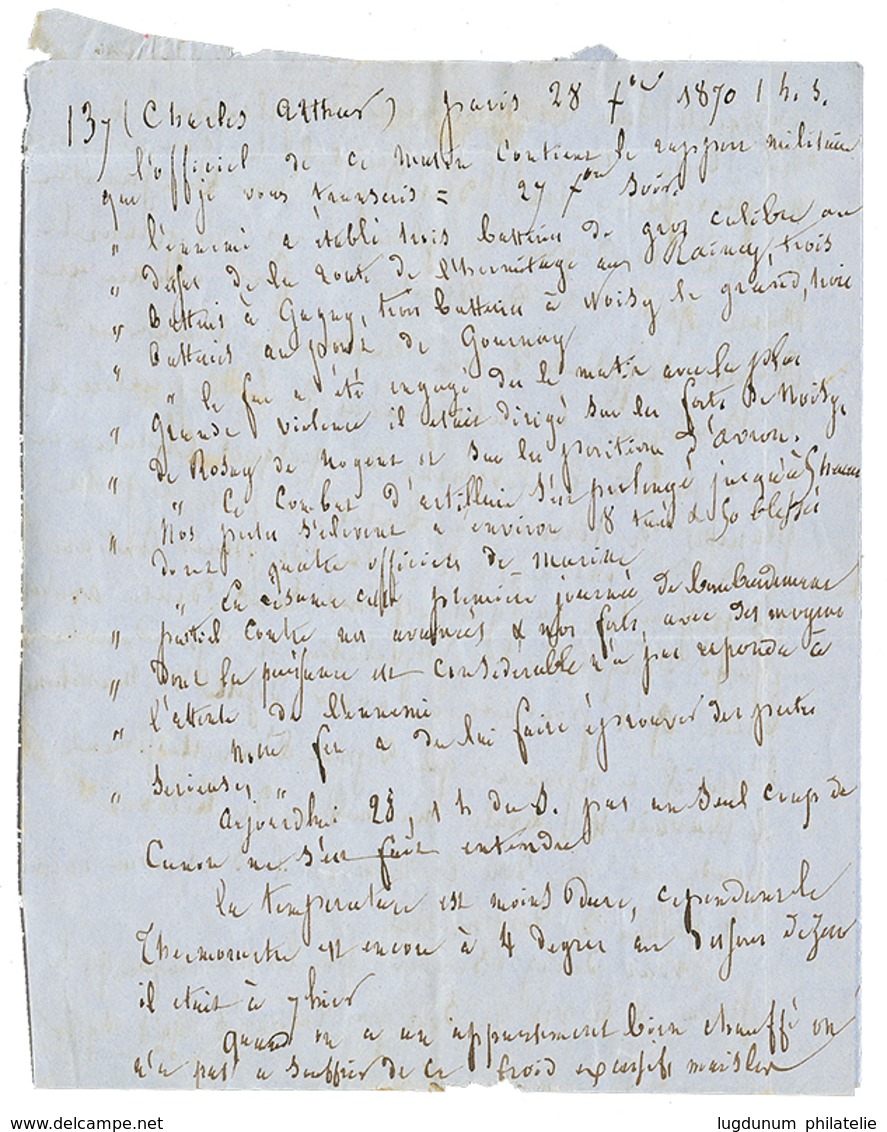 137 (Charles Arthur) paris 28 Xbre 1870 1 h. s.
l'officiel de ce matin contient le rapport militaire
que je vous transcris = 27 Xbre Soir
" l'ennemi a établi trois batteries de gros calibre au
" dessus de la route de l'hermitage au Raincy, trois
" batteries à Gagny, trois batteries à Noisy le grand, trois
" batteries au pont de Gournay
" le feu a été engagé dès le matin avec la plus
" grande violence il était dirigé sur les forts de Noisy,
" de Rosny de Nogent et sur les positions d'avron.
" Ce Combat d'artillerie s'est prolongé jusqu'à 5 heures
" Nos pertes s'élèvent à environ 8 tués & 50 blessés
dont quatre officiers de marine
" En résumé cette première journée de bombardement
" partiel contre nos avancés & nos forts, avec des moyens
" Dont la puissance est considérable n'a pas répondu à
" l'attente de l'ennemi
Notre feu a du lui faire éprouver des pertes
" Serieuses "
aujourdhui 28, 1 h du S. pas un seul coup de
Canon ne s'est fait entendre
la température est moins dure, cependant le
Thermometre est encore à 4 degrés au dessous de zero
il etait à 7 hier
quand on a un appartement bien chauffé on
n'a pas a souffrir de ce froid excessif mais les
www.delcampe.net
lugdunum philatelie